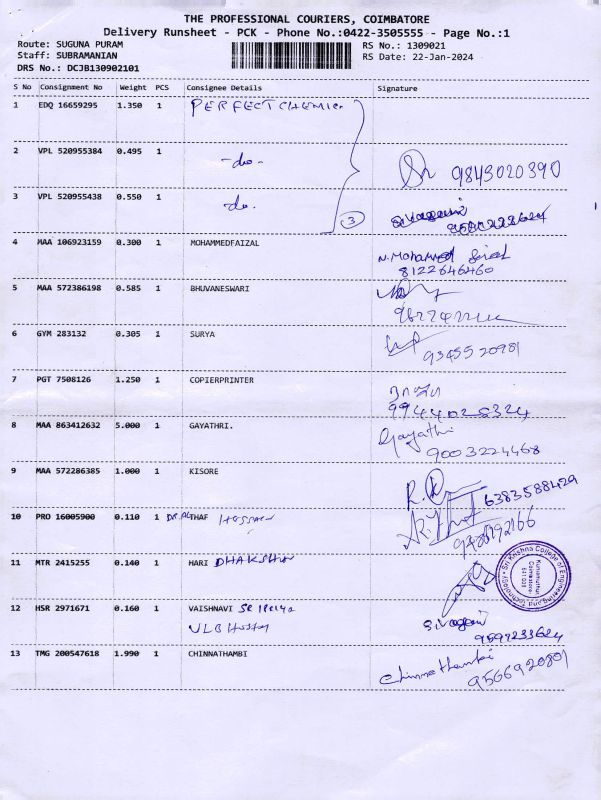 THE PROFESSIONAL COURIERS, COIMBATORE
Delivery Runsheet - PCK - Phone No.:0422-3505555 - Page No.:1
Route: SUGUNA PURAM RS No.: 1309021
Staff: SUBRAMANIAN RS Date: 22-Jan-2024
DRS No.: DCJB130902101
S No Consignment No Weight PCS Consignee Details Signature
1 EDQ 16659295 1.350 1 PERFECT CHEMIC
2 VPL 520955384 0.495 1 -do- 9843020390
3 VPL 520955438 0.550 1 -do. 3
4 MAA 106923159 0.300 1 MOHAMMEDFAIZAL N. Mohammed
8122646460
5 MAA 572386198 0.585 1 BHUVANESWARI
6 GYM 283132 0.305 1 SURYA 9345520981
7 PGT 7508126 1.250 1 COPIERPRINTER
9944028324
8 MAA 863412632 5.000 1 GAYATHRI. Gayathri
9003224468
9 MAA 572286385 1.000 1 KISORE R.K 6383588429
10 PRO 16005900 0.110 1 THAF
11 MTR 2415255 0.140 1 HARI DHAKSHW
Sri Krishna College of Engineering and Technology
Kuniamuthur
Coimbatore
641 008
12 HSR 2971671 0.160 1 VAISHNAVI
VLB
13 TMG 200547618 1.990 1 CHINNATHAMBI Chinnathambi
9566920801